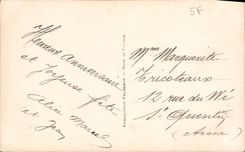 5F
Heureux Anniversaire
et Joyeuse fête
Alice Marcel
et Jean
Mme Marguerite
Tricoteaux
12 rue du Wé
St Quentin
(Aisne)